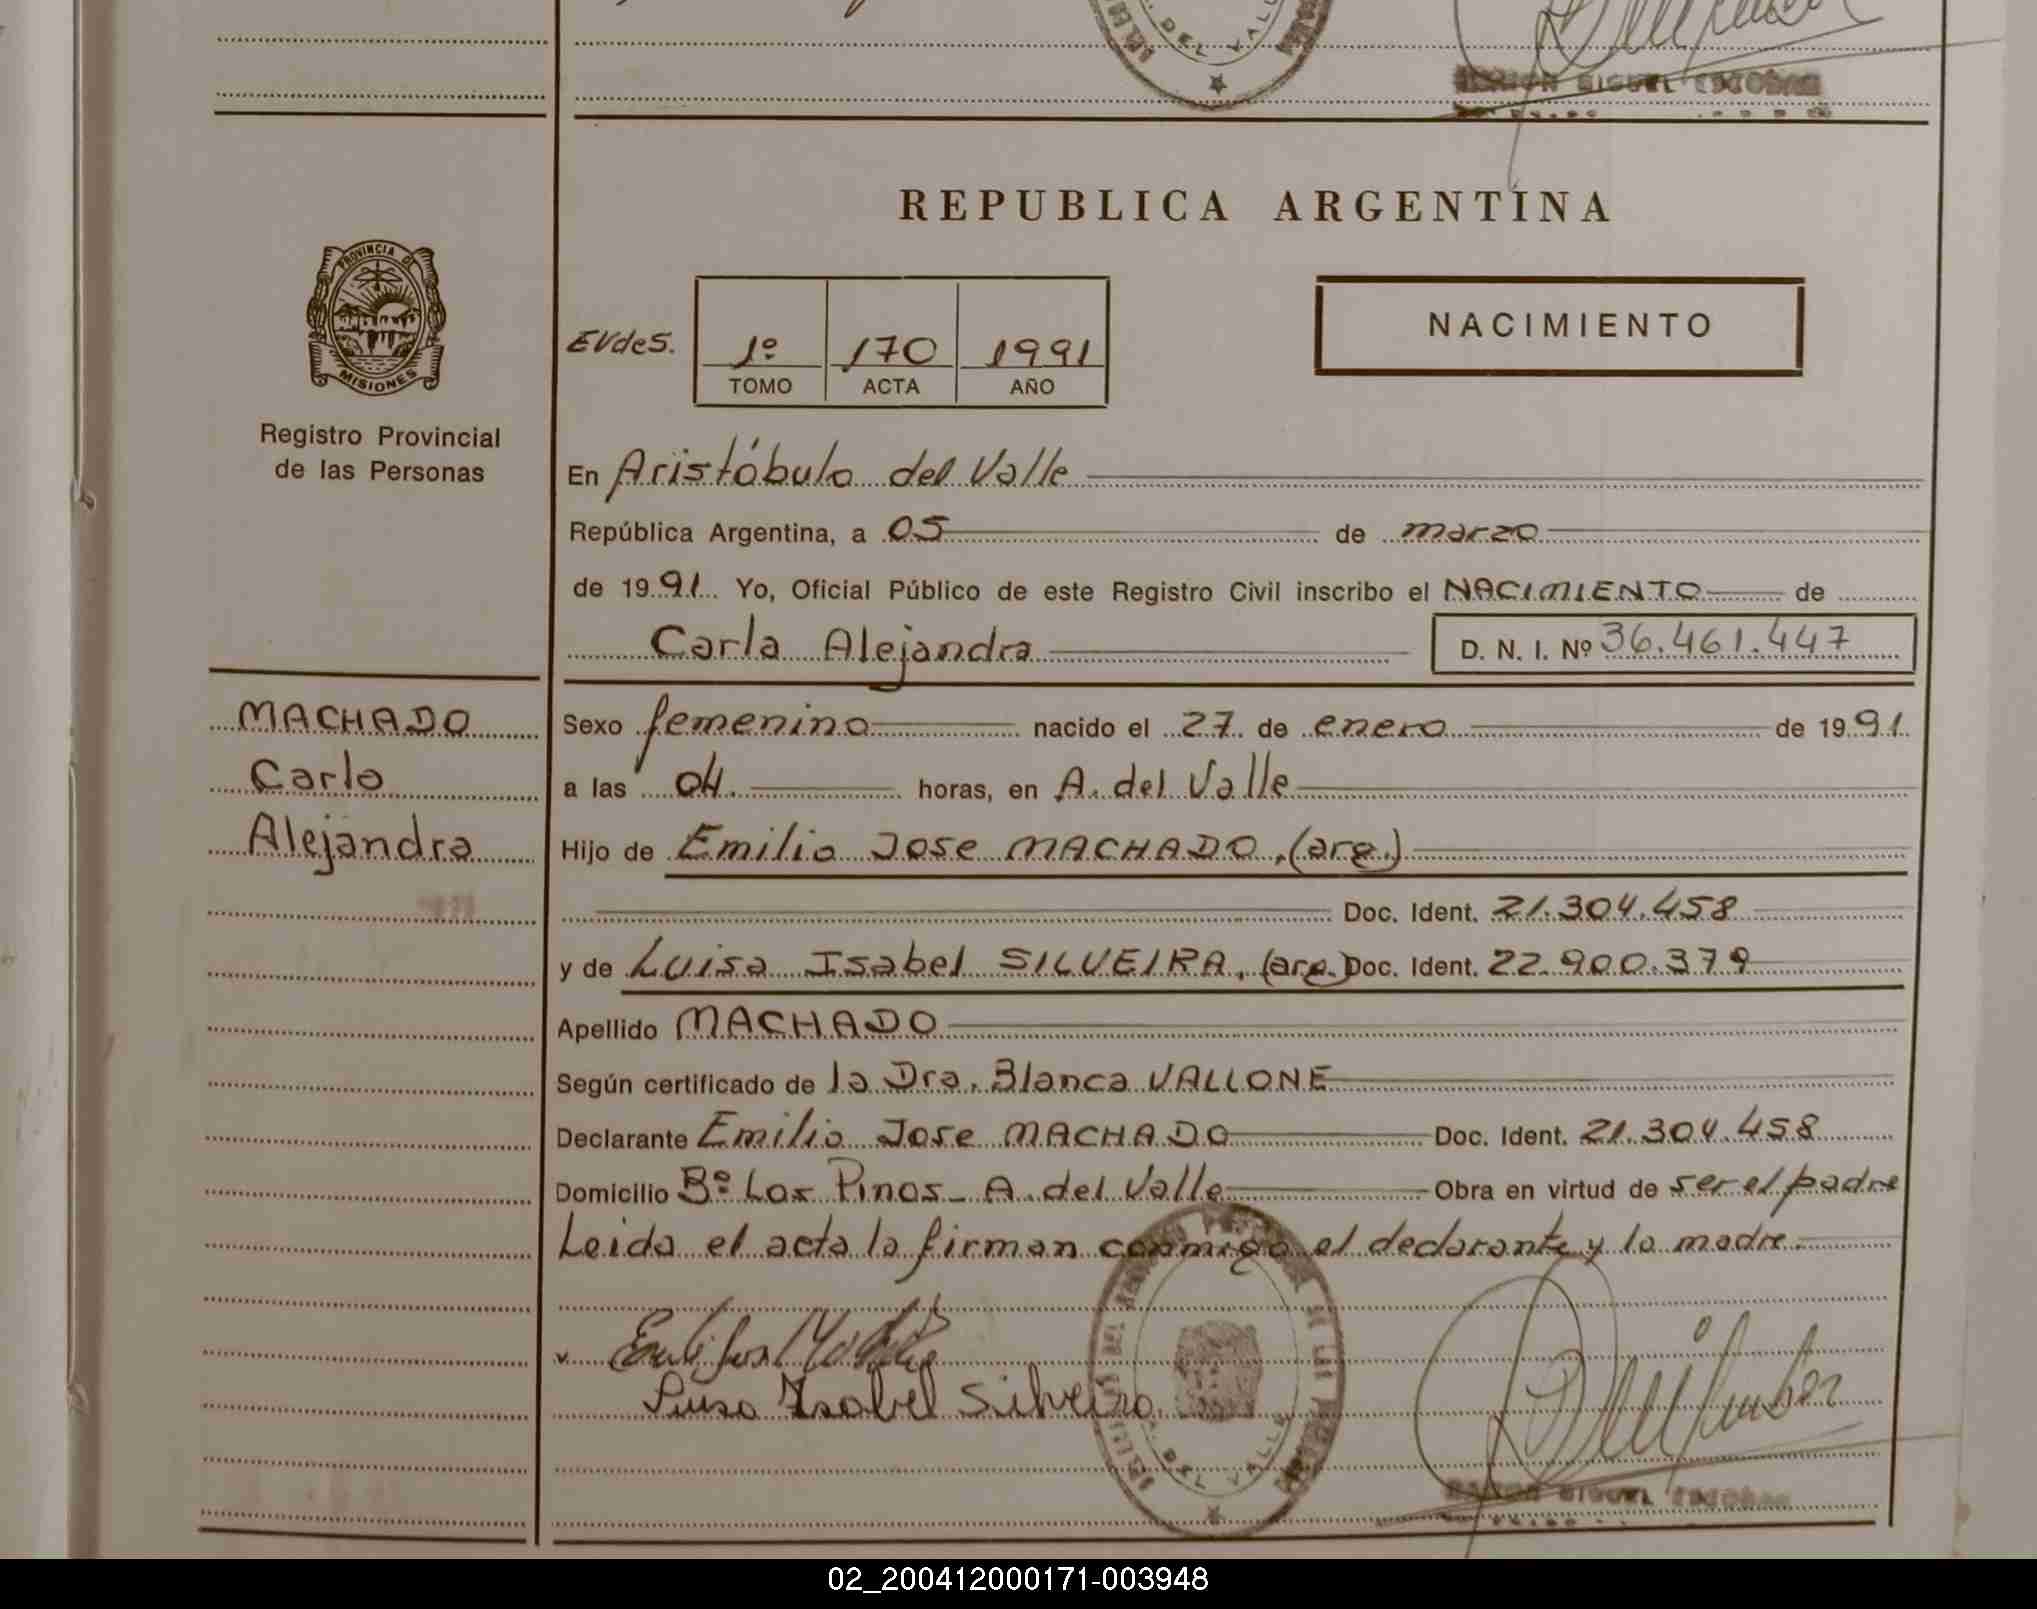 DEL VALLE
RAMON MIGUEL ESCOBAR
REPUBLICA ARGENTINA
PROVINCIA DE
MISIONES
Registro Provincial
de las Personas
EVdes.
1º 170 1991
TOMO ACTA AÑO
NACIMIENTO
En Aristóbulo del Valle
República Argentina, a 05 de marzo
de 1991. Yo, Oficial Público de este Registro Civil inscribo el NACIMIENTO de
Carla Alejandra D. N. I. Nº 36.461.447
MACHADO
Carla
Alejandra
Sexo femenino nacido el 27 de enero de 1991.
a las 04. horas, en A. del Valle
Hijo de Emilio Jose MACHADO, (arg.)
Doc. Ident. 21.304.458
y de Luisa Isabel SILVEIRA, (arg.) Doc. Ident. 22.900.379
Apellido MACHADO
Según certificado de la Dra. Blanca VALLONE
Declarante Emilio Jose MACHADO Doc. Ident. 21.304.458
Domicilio Bº Los Pinos - A. del Valle Obra en virtud de ser el padre
Leida el acta la firman conmigo el declarante y la madre.
Luisa Isabel Silveira
DEL VALLE
RAMON MIGUEL ESCOBAR
02_200412000171-003948